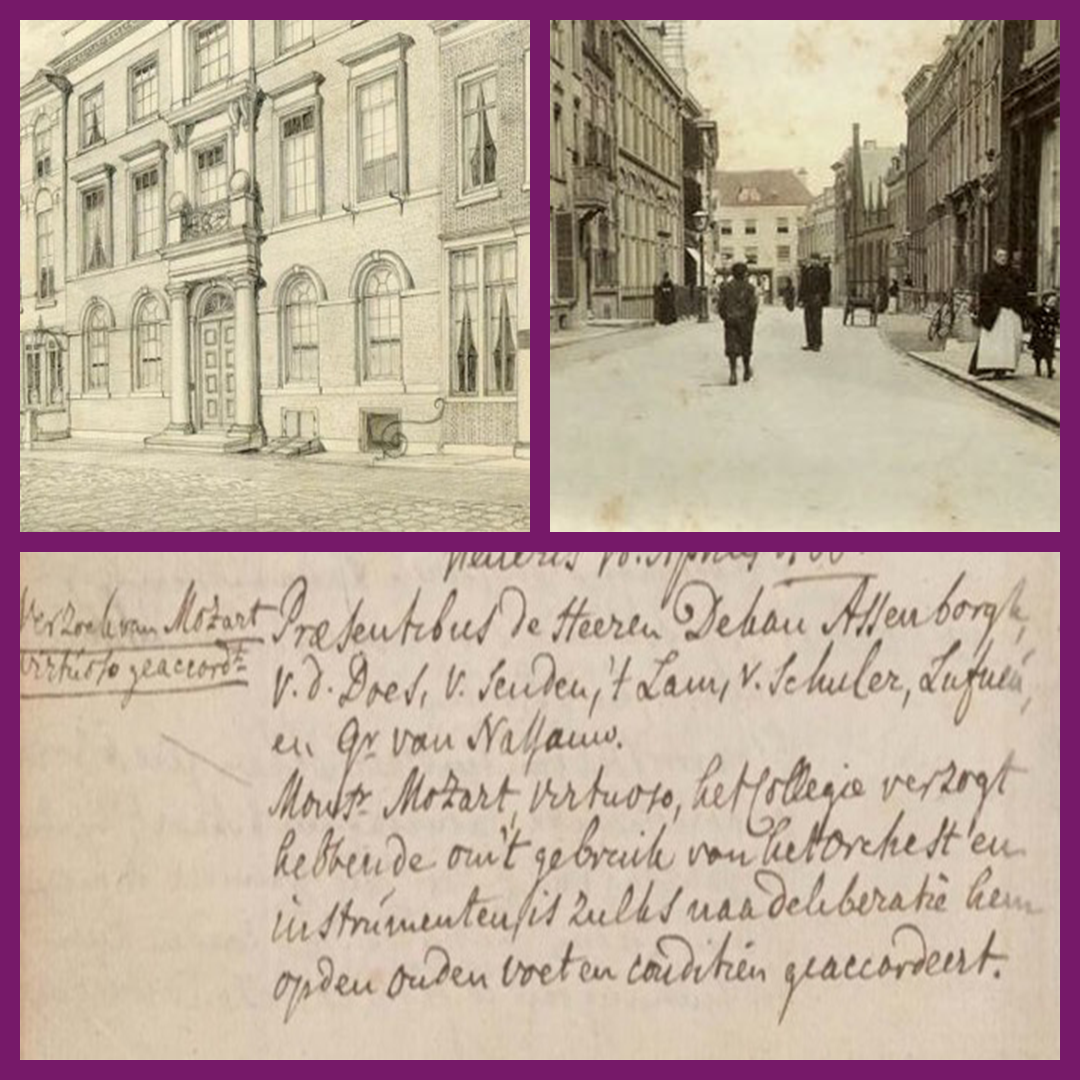 Verzoek van Mozart
virtuoso geaccordt.
Præsentibus de Heeren Dehau Assenborgh,
v. d. Does, v. Senden, 't Lam, v. Schuler,
en Gr. van Nassauw.
Monsr. Mozart, virtuoso, het Collegie verzogt
hebbende om 't gebruik van het Orchest en
instrumenten, is zulks naa deliberatie hem
op den ouden voet en conditiën geaccordeert.